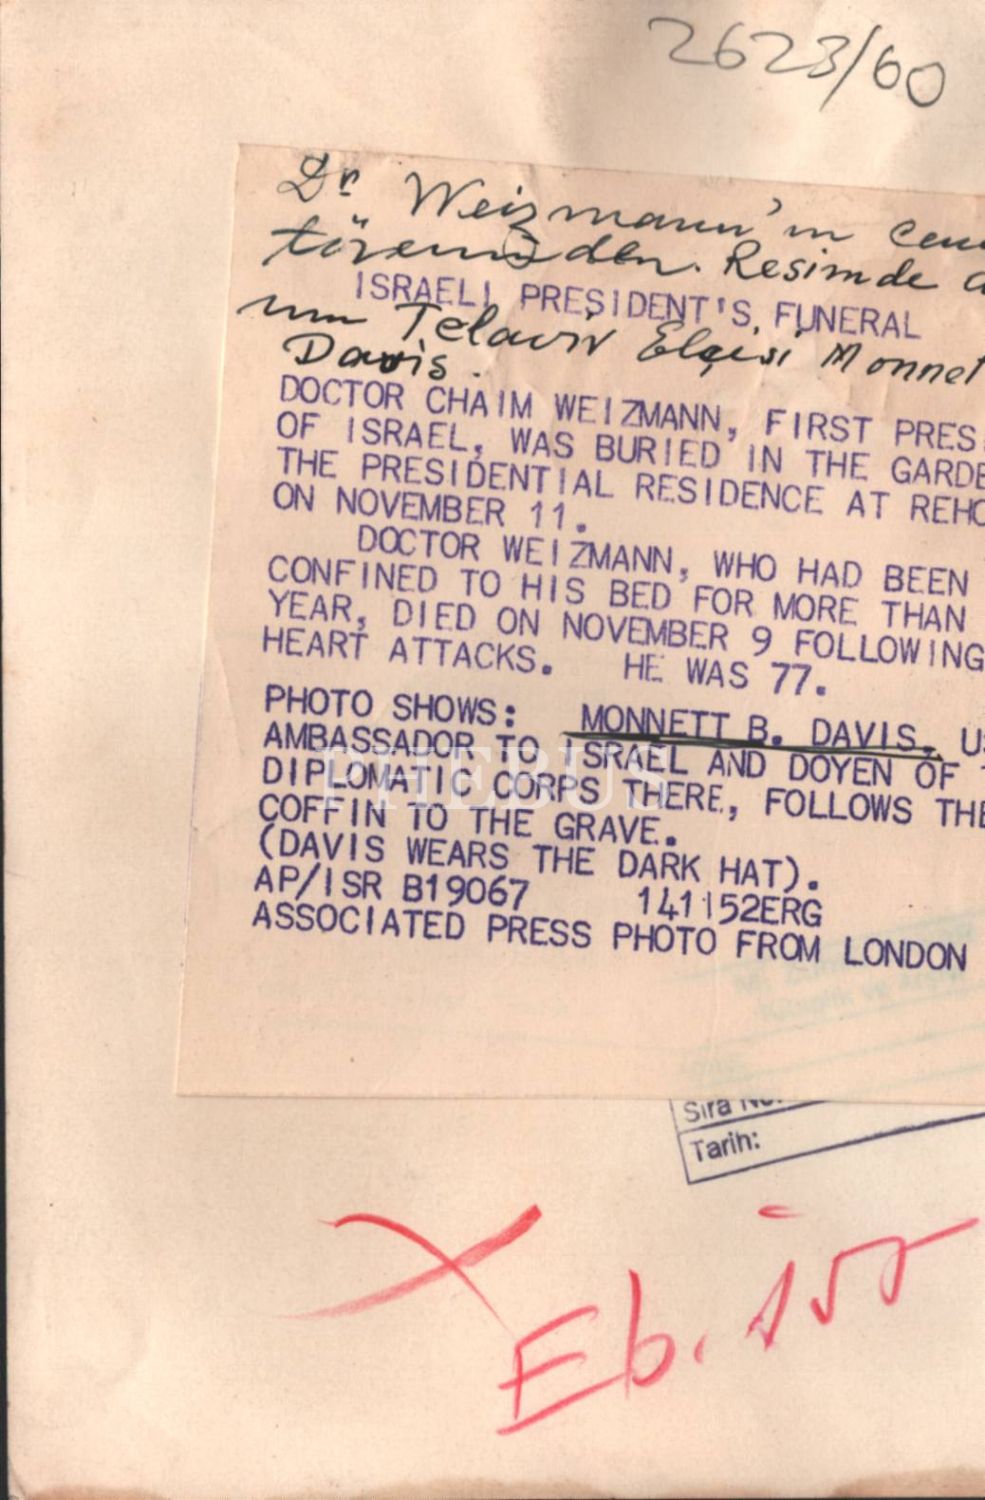 2623/60
Dr Weizmann'ın cen
töreninden. Resimde a
ISRAELI PRESIDENT'S, FUNERAL
nın Telaviv Elçisi Monnet
Davis.
DOCTOR CHAIM WEIZMANN, FIRST PRES
OF ISRAEL, WAS BURIED IN THE GARDE
THE PRESIDENTIAL RESIDENCE AT REHO
ON NOVEMBER 11.
DOCTOR WEIZMANN, WHO HAD BEEN
CONFINED TO HIS BED FOR MORE THAN
YEAR, DIED ON NOVEMBER 9 FOLLOWING
HEART ATTACKS. HE WAS 77.
PHOTO SHOWS: MONNETT B. DAVIS, U
AMBASSADOR TO ISRAEL AND DOYEN OF
DIPLOMATIC CORPS THERE, FOLLOWS THE
COFFIN TO THE GRAVE.
(DAVIS WEARS THE DARK HAT).
AP/ISR B19067 141152ERG
ASSOCIATED PRESS PHOTO FROM LONDON
PHEBUS
Sıra No:
Tarih:
Eb.